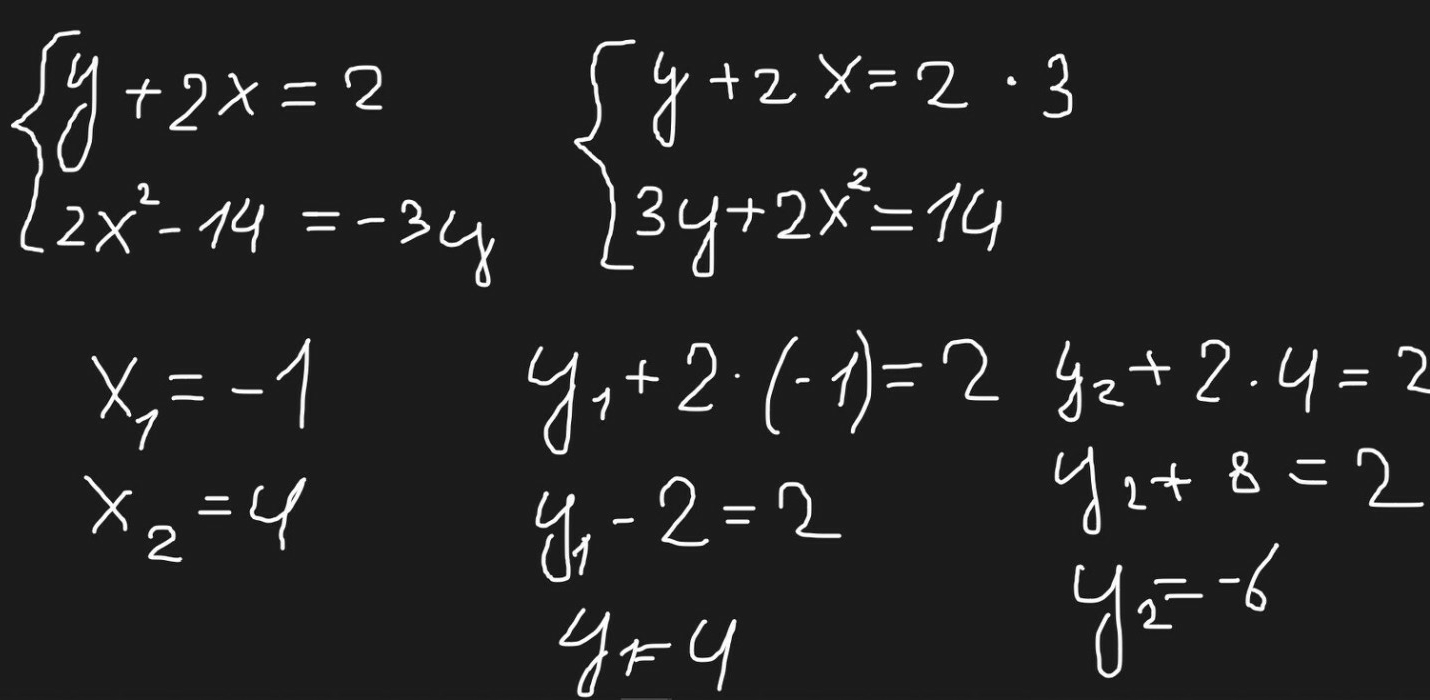 y + 2x = 2
2x² - 14 = -3y
y + 2x = 2 · 3
3y + 2x² = 14
x₁ = -1
x₂ = 4
y₁ + 2 · (-1) = 2
y₁ - 2 = 2
y₁ = 4
y₂ + 2 · 4 = 2
y₂ + 8 = 2
y₂ = -6